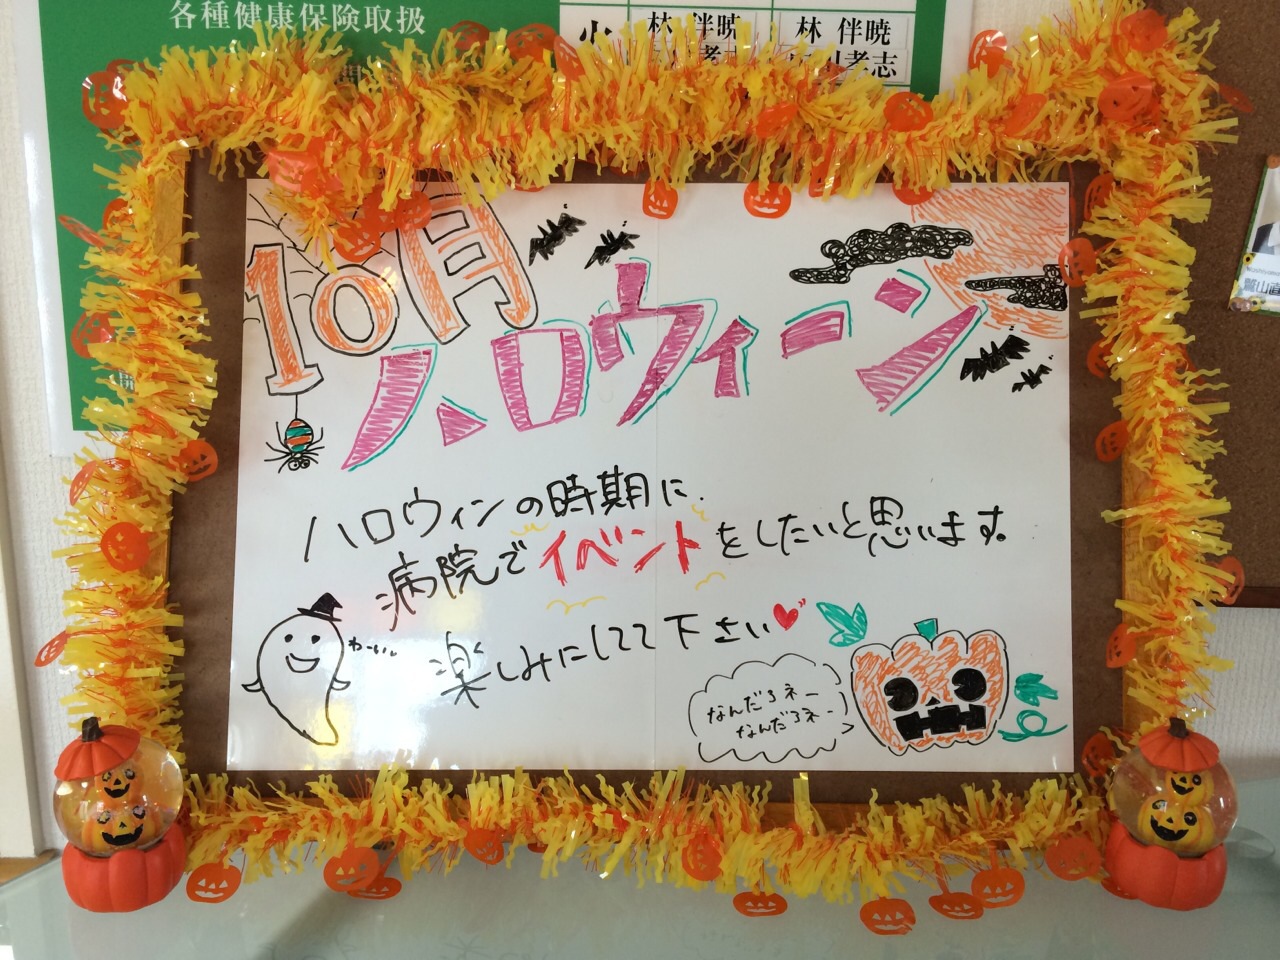 各種健康保険取扱
林 伴暁
林 伴暁
孝志
10月
ハロウィーン
ハロウィンの時期に
病院でイベントをしたいと思います。
楽しみにしてて下さい
わーい
なんだろネー
なんだろネー
鷲山直